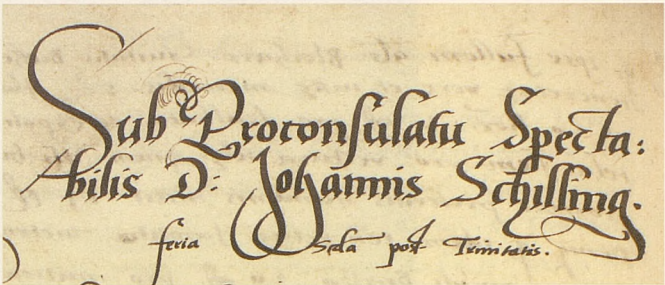 Sub Proconsulatu Specta:
bilis D: Johannis Schilling.
feria Scda post Trinitatis.